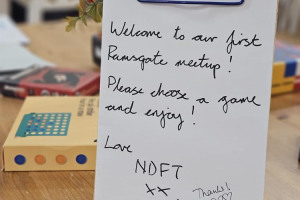 Welcome to our first
Ramsgate meetup!
Please choose a game
and enjoy!
Love
NDFT
xx
Thanks!